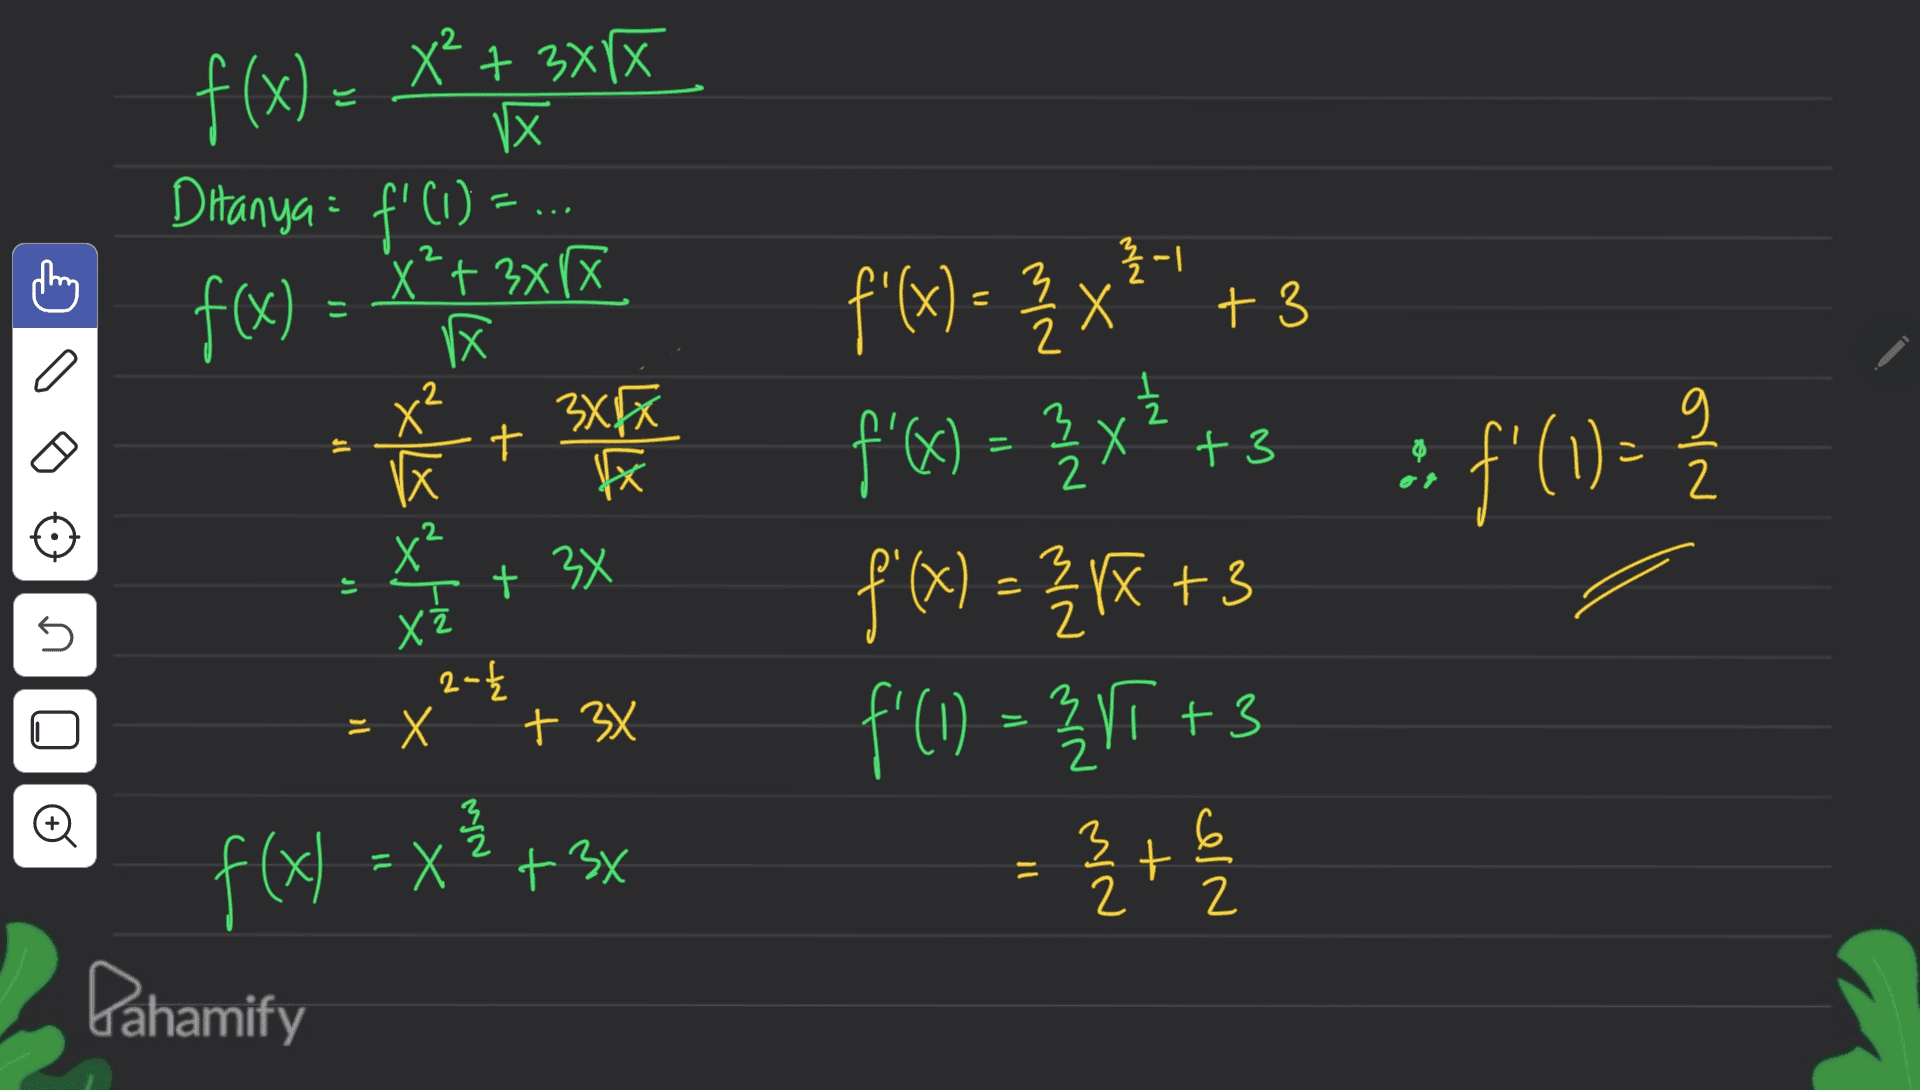 f(x) = x² + 3x√x / √x
Ditanya = f'(1) = ...
f(x) = x² + 3x√x / √x
= x² / √x + 3x√x / √x
= x² / x^½ + 3x
= x^(2-½) + 3x
f(x) = x^(3/2) + 3x
f'(x) = 3/2 x^(3/2 - 1) + 3
f'(x) = 3/2 x^½ + 3
f'(x) = 3/2 √x + 3
f'(1) = 3/2 √1 + 3
= 3/2 + 6/2
∴ f'(1) = 9/2
Pahamify